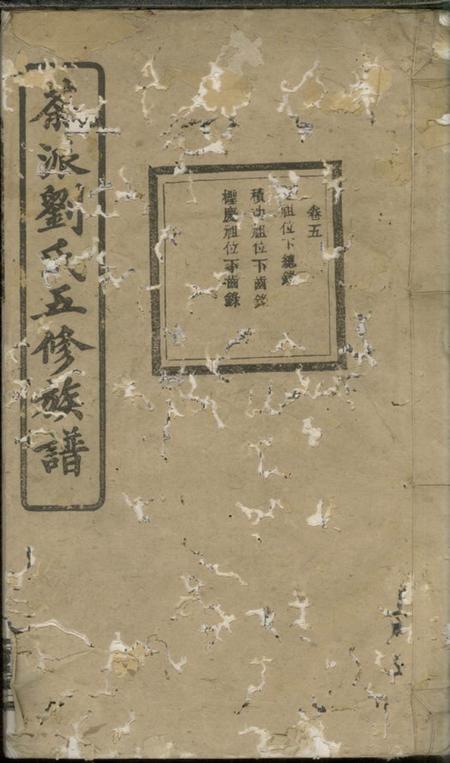 卷五
祖位下總錄
積 祖位下齒錄
慶祖位下齒錄
派劉氏五修族譜